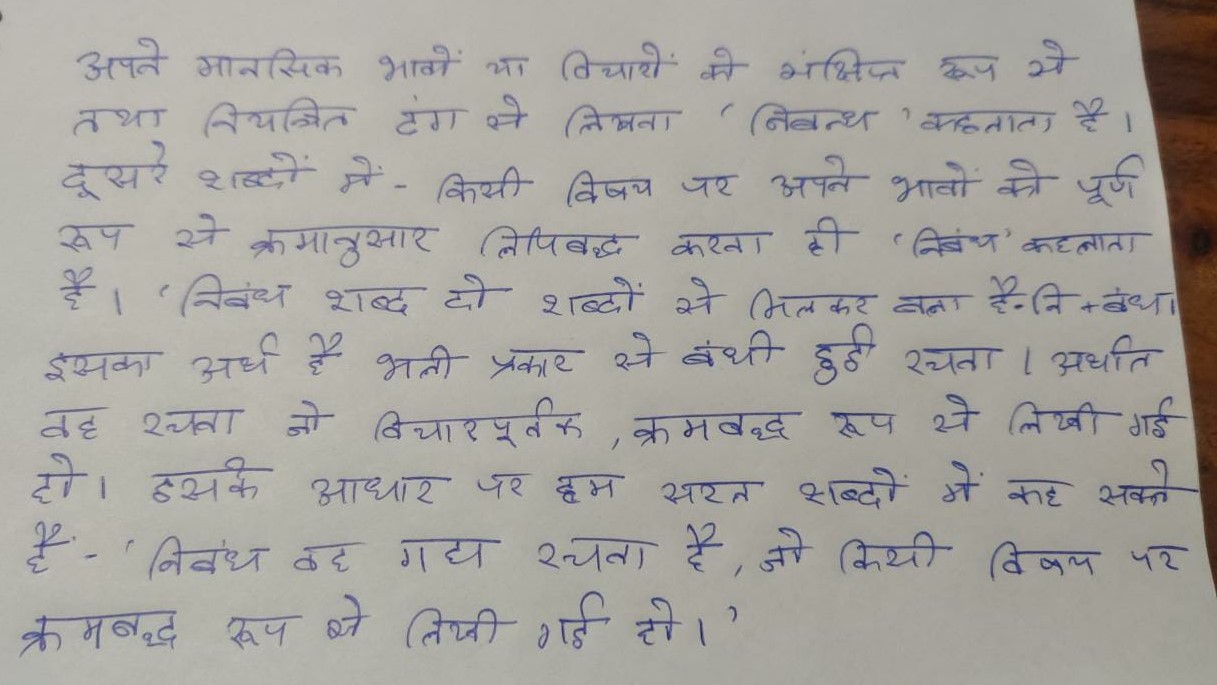 अपने मानसिक भावों या विचारों को संक्षिप्त रूप से
तथा नियन्त्रित ढंग से लिखना 'निबन्ध' कहलाता है।
दूसरे शब्दों में - किसी विषय पर अपने भावों को पूर्ण
रूप से क्रमानुसार लिपिबद्ध करना ही 'निबंध' कहलाता
है। 'निबंध शब्द दो शब्दों से मिलकर बना है- नि + बंध।
इसका अर्थ है भली प्रकार से बंधी हुई रचना। अर्थात
वह रचना जो विचारपूर्वक, क्रमबद्ध रूप से लिखी गई
हो। इसके आधार पर हम सरल शब्दों में कह सकते
है - 'निबंध वह गद्य रचना है, जो किसी विषय पर
क्रमबद्ध रूप से लिखी गई हो।'